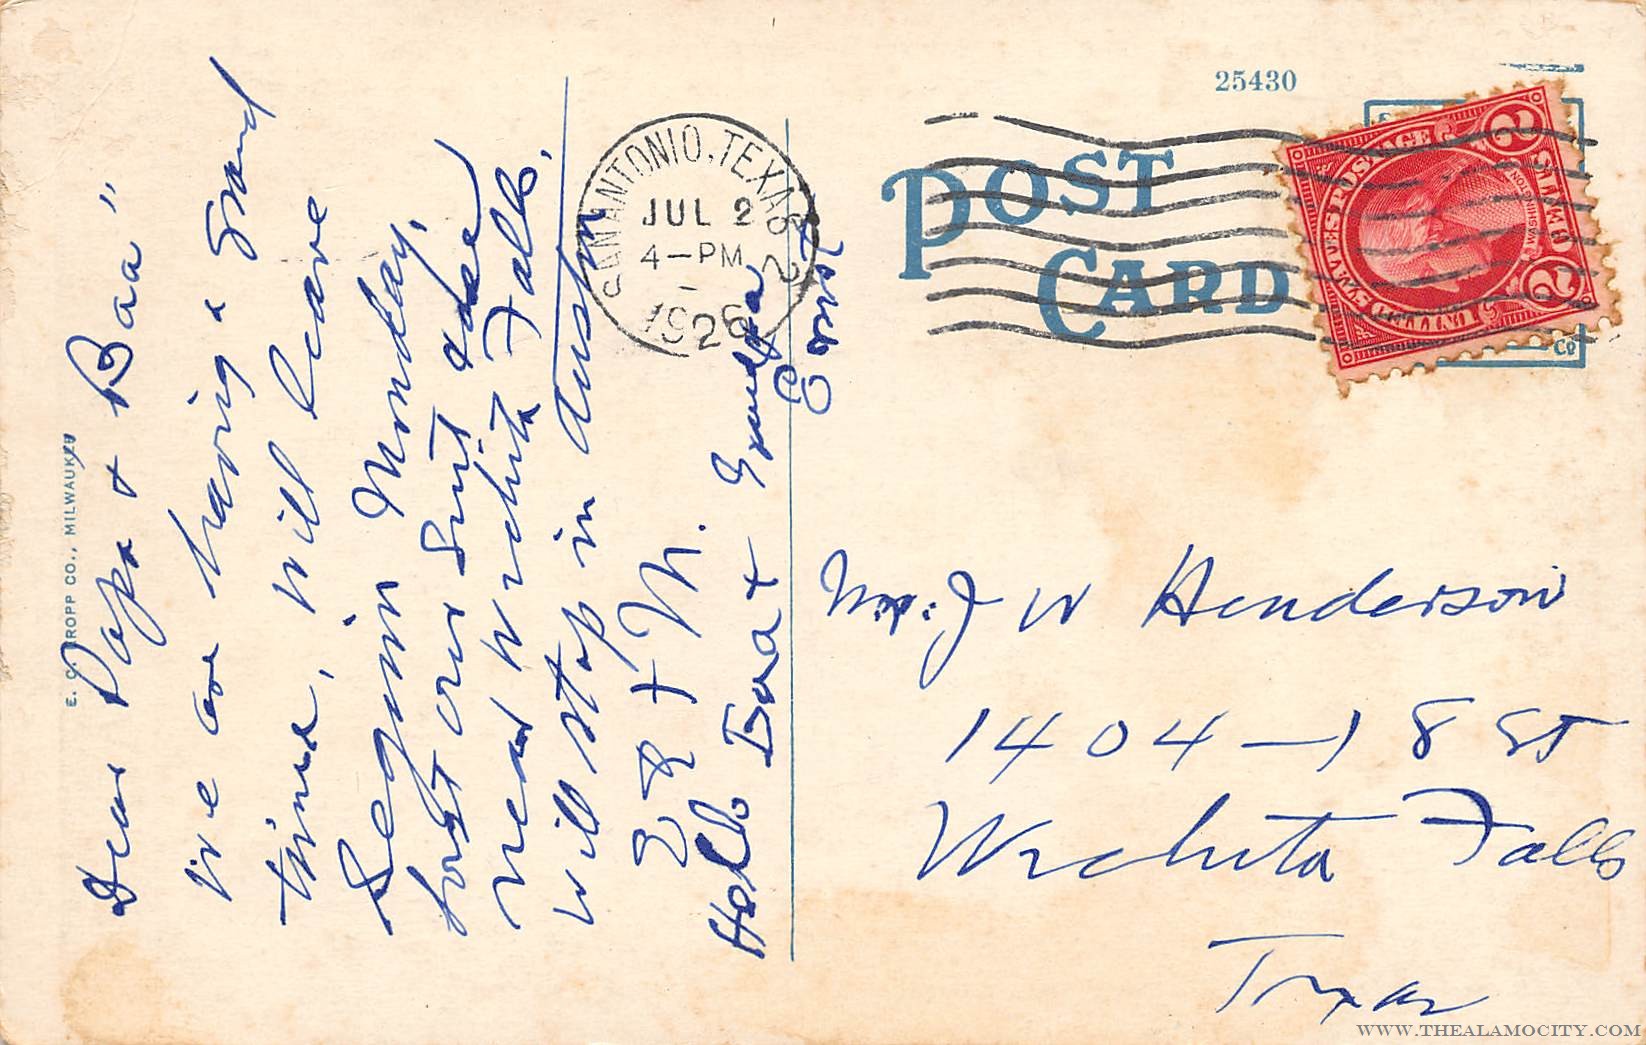 Dear Papa & Baa"
We are having a Grand
time, Will leave
Seguin Monday,
for our
near Wichita Falls,
will stop in Austin
E R & M.
Hello Ira +
E. C. KROPP CO., MILWAUKEE
SAN ANTONIO, TEXAS
JUL 2
4-PM
1926
25430
POST
CARD
UNITED STATES POSTAGE
WASHINGTON
2 CENTS 2
J W Henderson
1404-18 St
Wichita Falls
Texas
WWW.THEALAMOCITY.COM